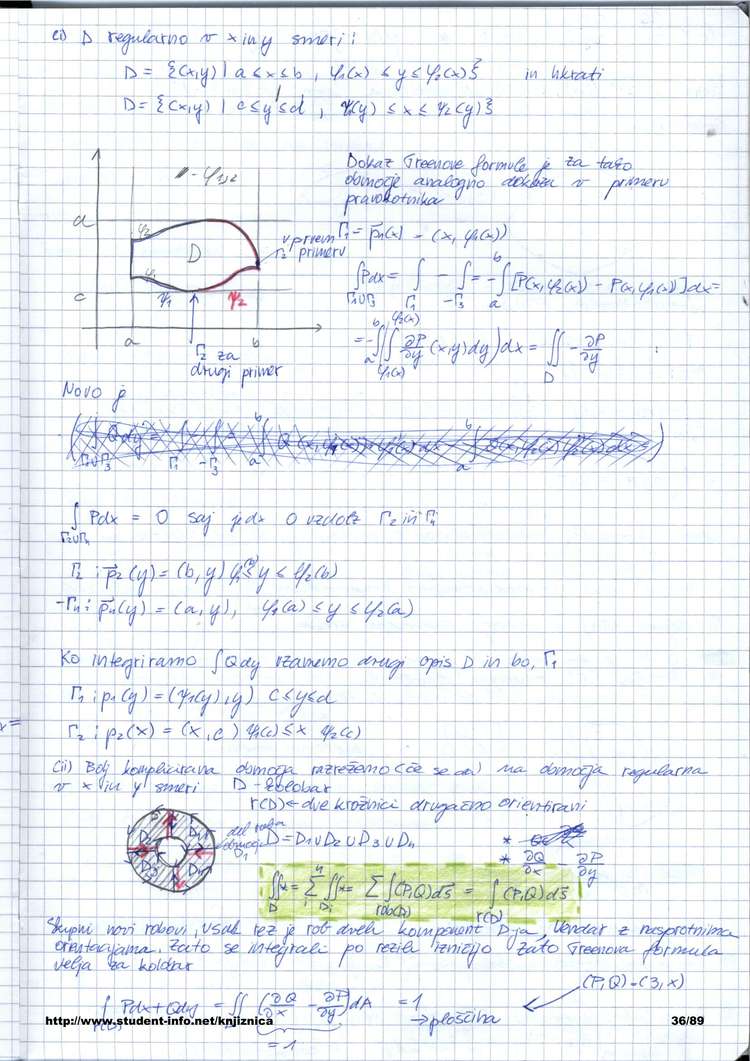 (i) D regularno v x in y smeri:
D = {(x,y) | a ≤ x ≤ b, φ₁(x) ≤ y ≤ φ₂(x)} in hkrati
D = {(x,y) | c ≤ y ≤ d, ψ₁(y) ≤ x ≤ ψ₂(y)}
Dokaz Greenove formule je za tako
območje analogno dokaza v primeru
pravokotnika
- φ₁,₂
d
φ₂
D
φ₁
c
ψ₁
ψ₂
a
b
v prvem
Γ₂ primeru
Γ₂ za
drugi primer
Γ₁ = p₁(x) - (x, φ₁(x))
∫ Pdx = ∫ - ∫ = - ∫ [P(x, φ₂(x)) - P(x, φ₁(x))] dx =
Γ₁∪Γ₃ Γ₁ -Γ₃ a b
= - ∫ ( ∫ ∂P/∂y (x,y) dy ) dx = ∬ - ∂P/∂y
a b φ₁(x) φ₂(x) D
Novo je
∫ Pdx = 0 saj je dx 0 vzdolž Γ₂ in Γ₄
Γ₂∪Γ₄
Γ₂ : p₂(y) = (b, y) φ₁(b) ≤ y ≤ φ₂(b)
-Γ₄ : p₄(y) = (a, y), φ₁(a) ≤ y ≤ φ₂(a)
Ko integriramo ∫Qdy vzamemo drugi opis D in bo, Γ₁
Γ₁ : p₁(y) = (ψ₁(y), y) c ≤ y ≤ d
Γ₂ : p₂(x) = (x, c) ψ₁(c) ≤ x ψ₂(c)
(ii) Bolj komplicirana območja razrežemo (če se da) na območja regularna
v x in y smeri D - kolobar
r(D) ← dve krožnici drugačno orientirani
del roba
območja
D₁
D = D₁ ∪ D₂ ∪ D₃ ∪ D₄
* ∂Q/∂x - ∂P/∂y
∬* = Σ ∬* = Σ ∫(P,Q)ds = ∫ (P,Q) ds
D i n Di rob(Di) r(D)
Skupni novi robovi, vsak rez je rob dveh komponent D-ja, vendar z nasprotnima
orientacijama. Zato se integrali po rezih izničijo zato Greenova formula
velja za kolobar
(P,Q) = (3, x)
∫ Pdx + Qdy = ∬ (∂Q/∂x - ∂P/∂y) dA = 1
→ ploščina
= 1
http://www.student-info.net/knjiznica
36/89